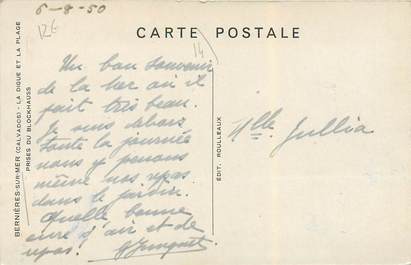 6-8-50
CARTE POSTALE
Un bon souvenir
de la mer où il
fait très beau.
Je suis dehors
toute la journée
nous y prenons
même nos repas
dans le jardin.
Quelle bonne
cure d'air et de
repos.
Mlle Jullia
BERNIÈRES-SUR-MER (CALVADOS) - LA DIGUE ET LA PLAGE
PRISES DU BLOCKHAUSS
ÉDIT. ROULLEAUX